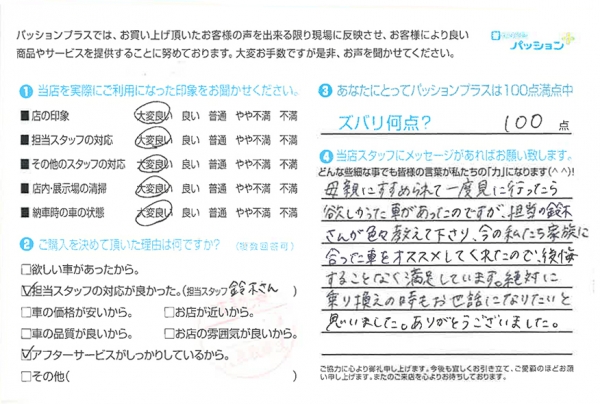 パッションプラスでは、お買い上げ頂いたお客様の声を出来る限り現場に反映させ、お客様により良い
商品やサービスを提供することに努めております。大変お手数ですが是非、お声を聞かせてください。
パッション+
❶ 当店を実際にご利用になった印象をお聞かせください。
■店の印象 大変良い 良い 普通 やや不満 不満
■担当スタッフの対応 大変良い 良い 普通 やや不満 不満
■その他のスタッフの対応 大変良い 良い 普通 やや不満 不満
■店内・展示場の清掃 大変良い 良い 普通 やや不満 不満
■納車時の車の状態 大変良い 良い 普通 やや不満 不満
❷ ご購入を決めて頂いた理由は何ですか? (複数回答可)
□欲しい車があったから。
☑担当スタッフの対応が良かった。(担当スタッフ 鈴木さん )
□車の価格が安いから。 □お店が近いから。
□車の品質が良いから。 □お店の雰囲気が良いから。
☑アフターサービスがしっかりしているから。
□その他( )
❸ あなたにとってパッションプラスは100点満点中
ズバリ何点? 100 点
❹ 当店スタッフにメッセージがあればお願い致します。
どんな些細な事でも皆様の言葉が私たちの「力」になります(^^)!
母親にすすめられて一度見に行ったら
欲しかった車があったのですが、担当の鈴木
さんが色々教えて下さり、今の私たち家族に
合った車をオススメしてくれたので、後悔
することなく満足しています。絶対に
乗り換えの時もお世話になりたいと
思いました。ありがとうございました。
ご協力に心より御礼申し上げます。今後も宜しくお引き立て、ご愛顧のほどお願
い申し上げます。またのご来店を心よりお待ちしております。